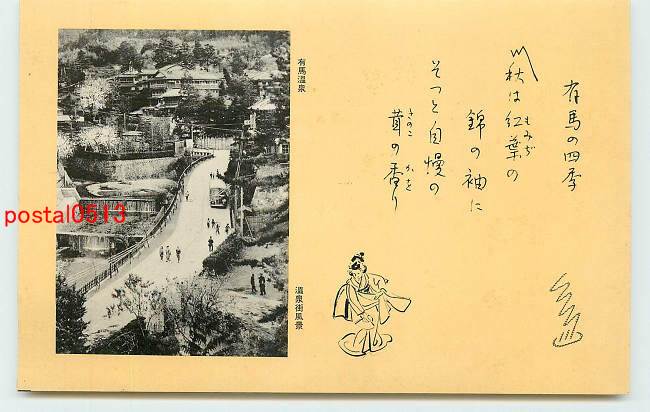 有馬の四季
〽秋は紅葉の
もみぢ
錦の袖に
そっと自慢の
茸の香り
きのこ
かをり
有馬温泉
温泉街風景
postal0513